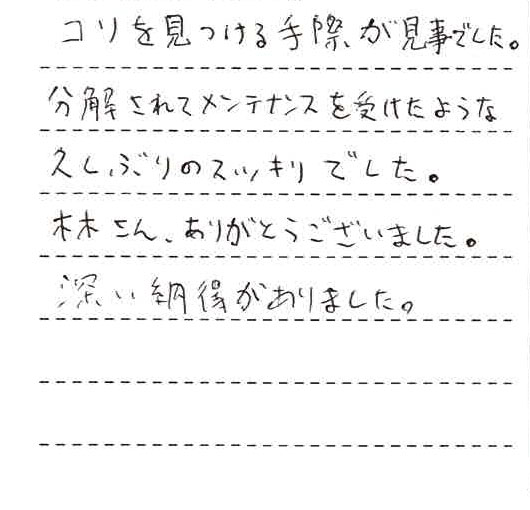 コリを見つける手際が見事でした。
分解されてメンテナンスを受けたような
久しぶりのスッキリでした。
林さん、ありがとうございました。
深い納得がありました。